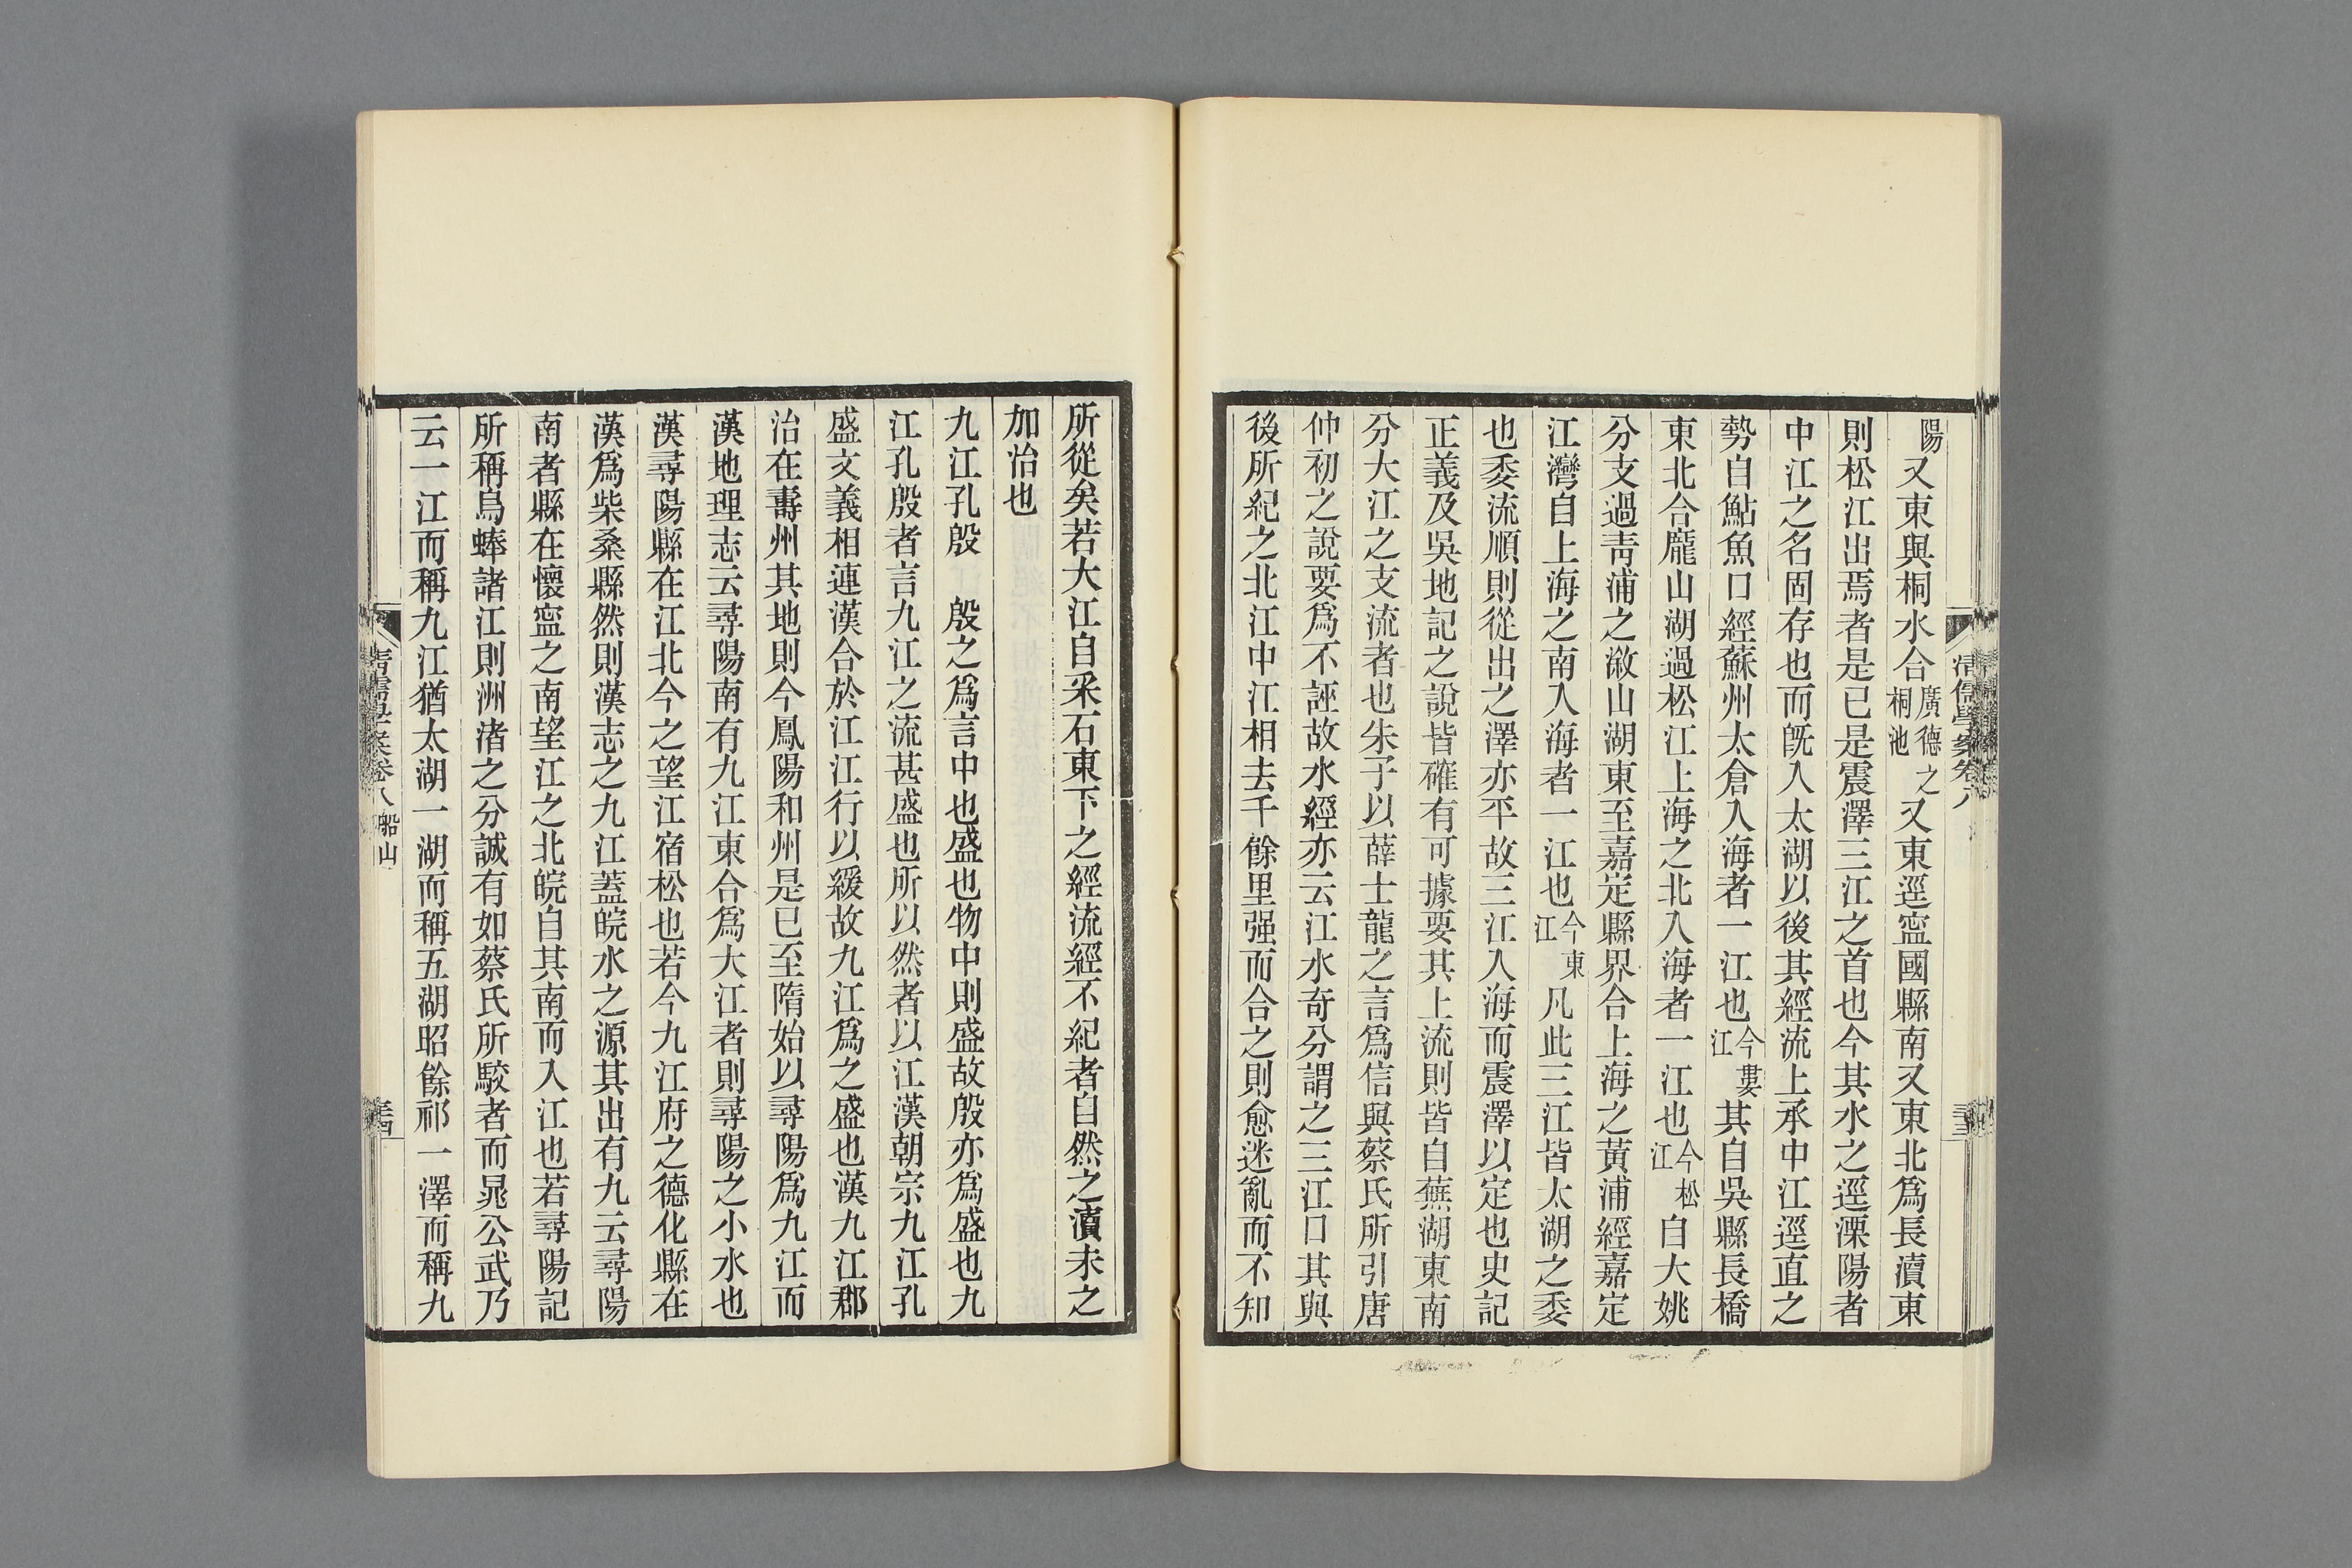 陽又東與桐水合廣德之桐池又東逕寍國縣南又東北爲長瀆東
則松江出焉者是已是震澤三江之首也今其水之逕溧陽者
中江之名固存也而旣入太湖以後其經流上承中江逕直之
勢自鮎魚口經蘇州太倉入海者一江也今婁江其自吳縣長橋
東北合龐山湖過松江上海之北入海者一江也今松江自大姚
分支過靑浦之澱山湖東至嘉定縣界合上海之黃浦經嘉定
江灣自上海之南入海者一江也今東江凡此三江皆太湖之委
也委流順則從出之澤亦平故三江入海而震澤以定也史記
正義及吳地記之說皆確有可據要其上流則皆自蕪湖東南
分大江之支流者也朱子以薛士龍之言爲信與蔡氏所引唐
仲初之說要爲不誣故水經亦云江水奇分謂之三江口其與
後所紀之北江中江相去千餘里强而合之則愈迷亂而不知
清儒學案卷八
三三
所從矣若大江自采石東下之經流經不紀者自然之瀆未之
加治也
九江孔殷　殷之爲言中也盛也物中則盛故殷亦爲盛也九
江孔殷者言九江之流甚盛也所以然者以江漢朝宗九江孔
盛文義相連漢合於江江行以緩故九江爲之盛也漢九江郡
治在壽州其地則今鳳陽和州是已至隋始以尋陽爲九江而
漢地理志云尋陽南有九江東合爲大江者則尋陽之小水也
漢尋陽縣在江北今之望江宿松也若今九江府之德化縣在
漢爲柴桑縣然則漢志之九江蓋皖水之源其出有九云尋陽
南者縣在懷寍之南望江之北皖自其南而入江也若尋陽記
所稱烏蜯諸江則洲渚之分誠有如蔡氏所駮者而晁公武乃
云一江而稱九江猶太湖一湖而稱五湖昭餘祁一澤而稱九
清儒學案卷八　船山
三四